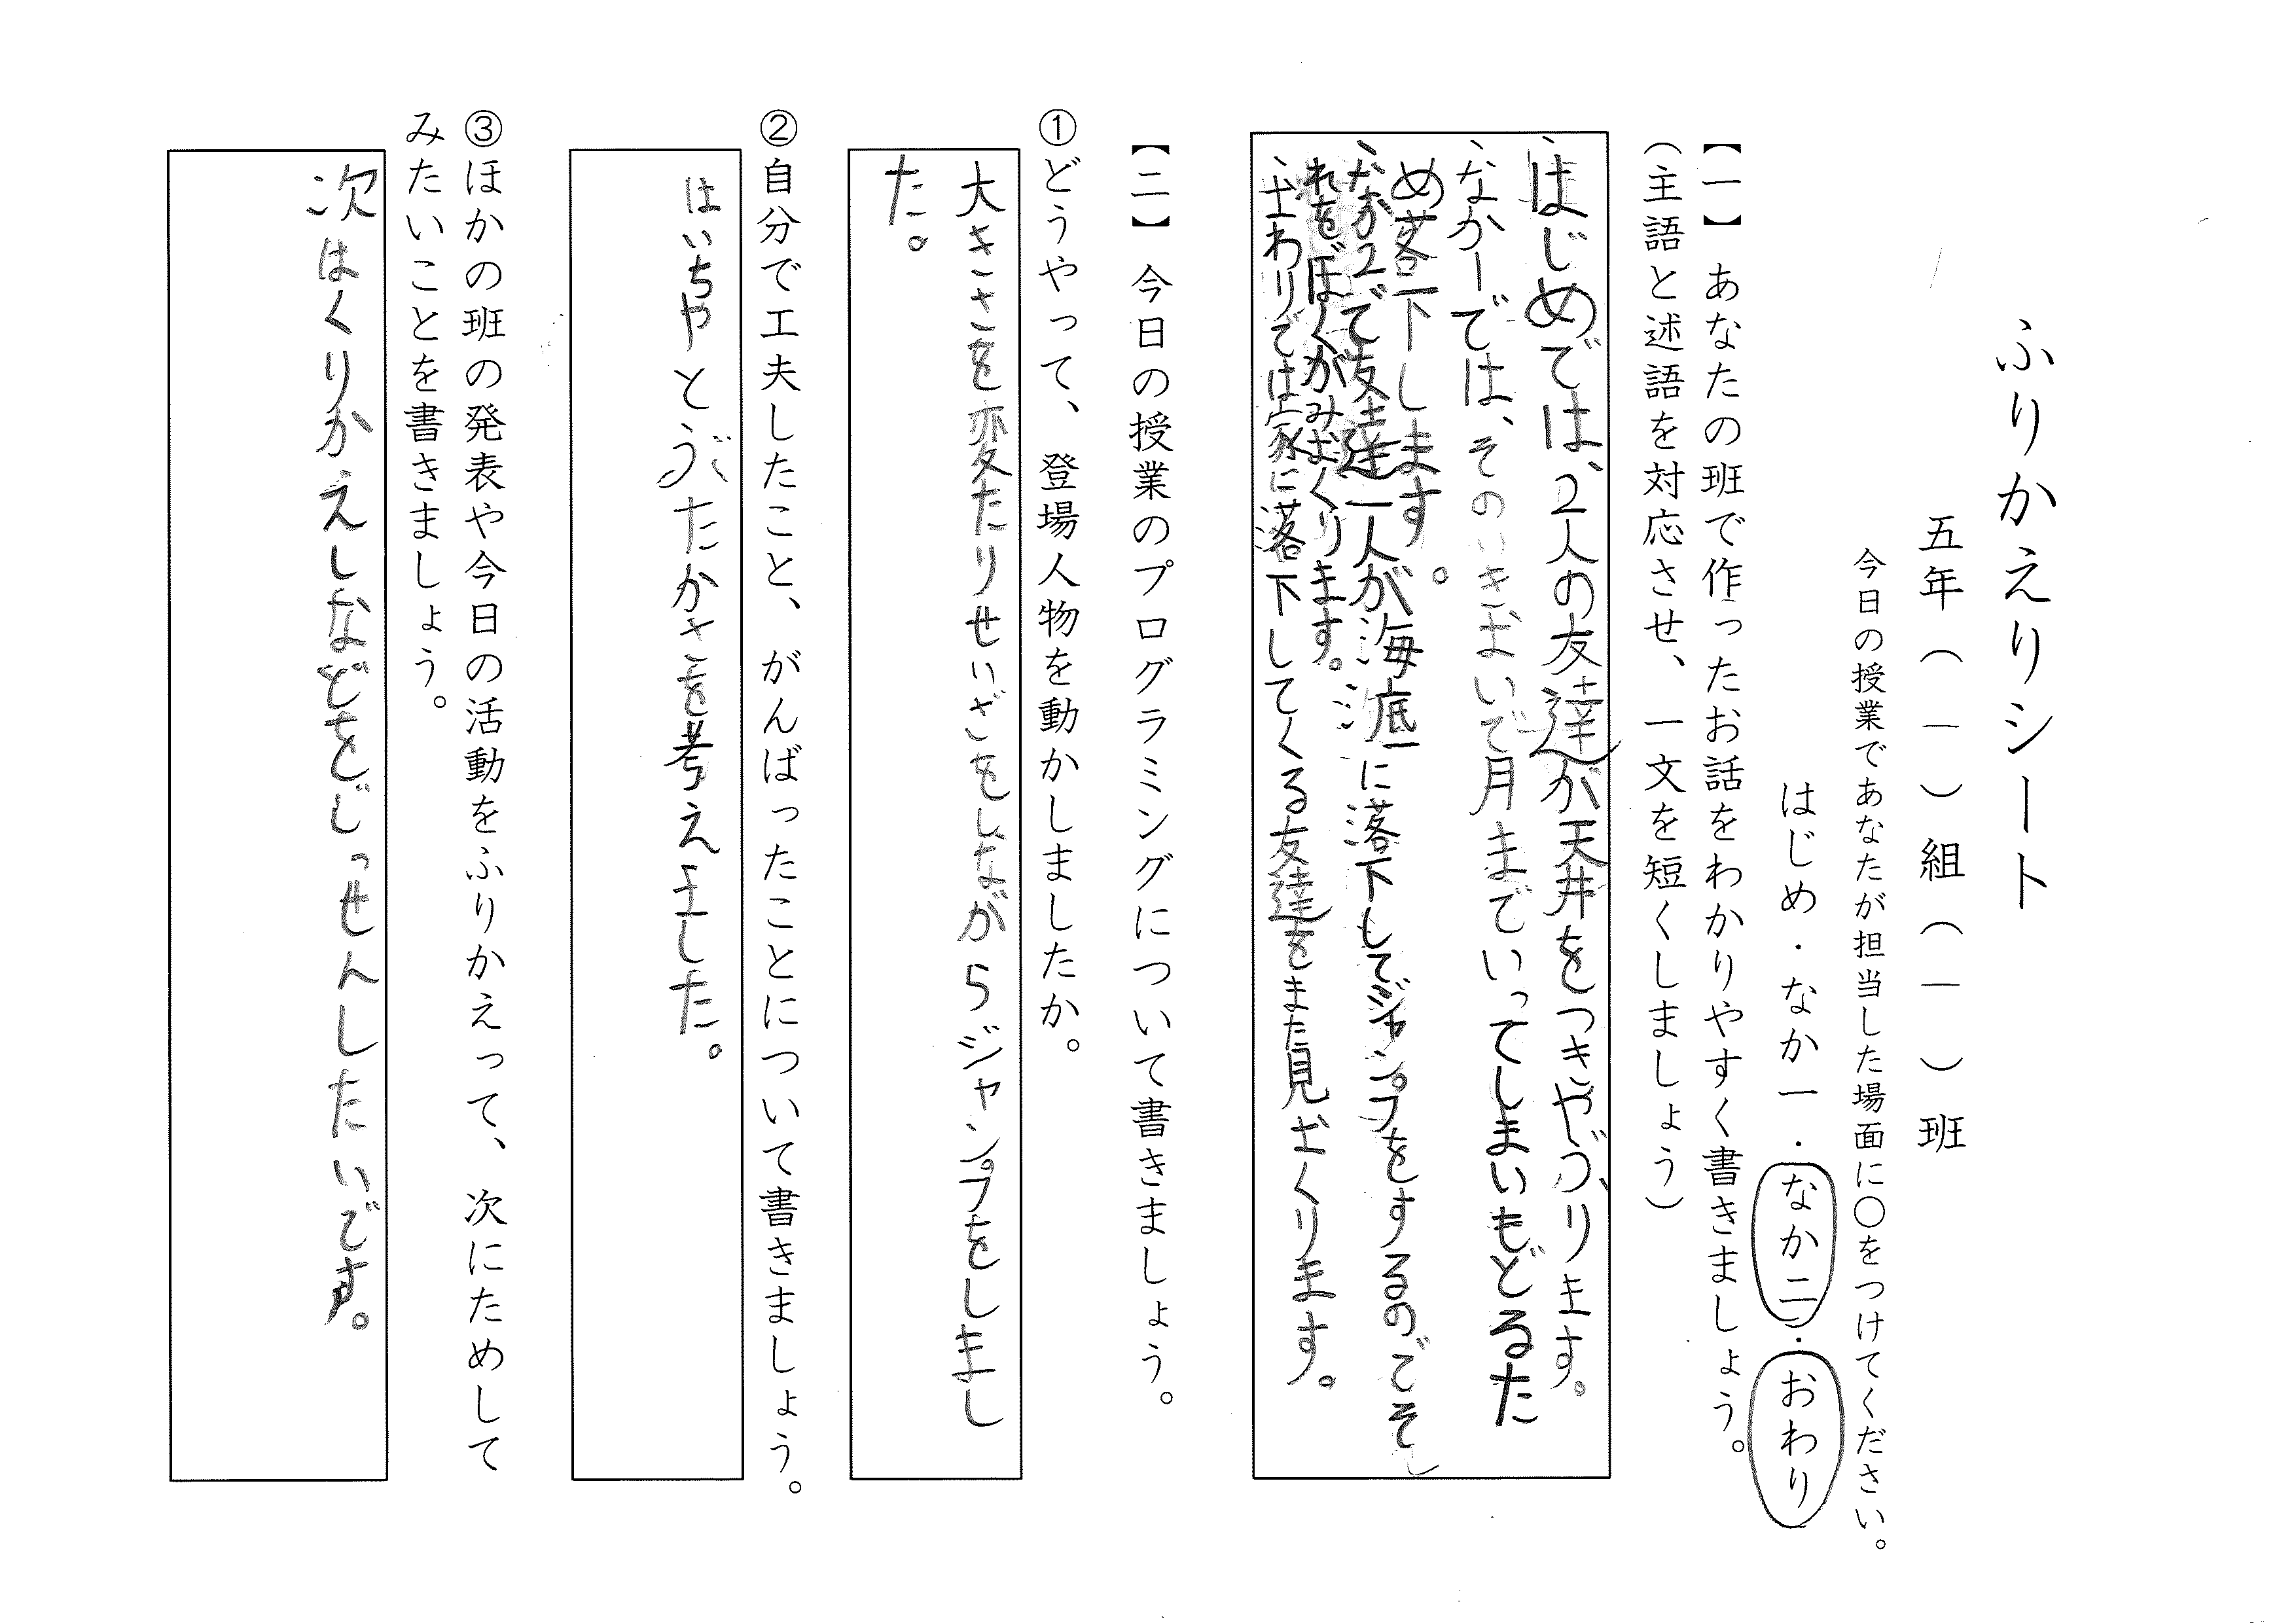 ふりかえりシート
五年（一）組（一）班
今日の授業であなたが担当した場面に〇をつけてください。
はじめ・なか一・なか二・おわり
【一】あなたの班で作ったお話をわかりやすく書きましょう。
（主語と述語を対応させ、一文を短くしましょう）
、はじめでは、2人の友達が天井をつきやぶります。
、なか一では、そのいきおいで月までいってしまいもどるた
め落下します。
、なか2で友達一人が海底に落下してジャンプをするのでそ
れをぼくがみおくります。
、おわりでは家に落下してくる友達をまた見おくります。
【二】今日の授業のプログラミングについて書きましょう。
①どうやって、登場人物を動かしましたか。
大きさを変たりせいぎをしながらジャンプをしまし
た。
②自分で工夫したこと、がんばったことについて書きましょう。
はいちやとぶたかさを考えました。
③ほかの班の発表や今日の活動をふりかえって、次にためして
みたいことを書きましょう。
次はくりかえしなどをじっせんしたいです。